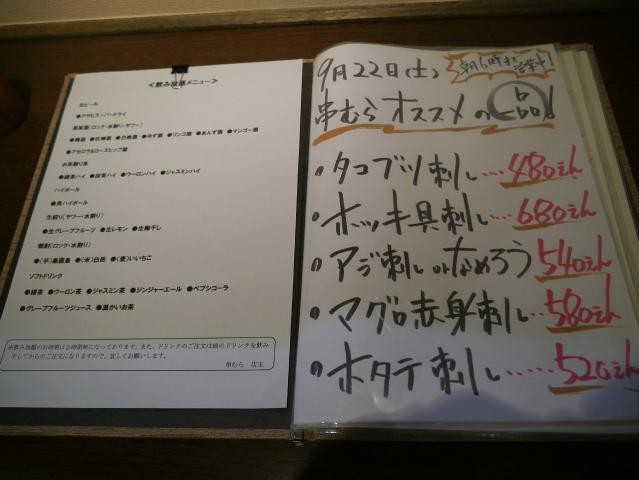 ≪飲み放題メニュー≫
生ビール
●アサヒスーパードライ
果実酒(ロック・水割り・サワー)
●梅酒 ●紅梅酒 ●白桃酒 ●ゆず酒 ●リンゴ酒 ●あんず酒 ●マンゴー酒
●アセロラ&ローズヒップ酒
お茶割り系
●緑茶ハイ ●抹茶ハイ ●ウーロンハイ ●ジャスミンハイ
ハイボール
●角ハイボール
生絞り(サワー・水割り)
●生グレープフルーツ ●生レモン ●生梅干し
焼酎(ロック・水割り)
●(芋)黒霧島 ●(米)白岳 ●(麦)いいちこ
ソフトドリンク
●緑茶 ●ウーロン茶 ●ジャスミン茶 ●ジンジャーエール ●ペプシコーラ
●グレープフルーツジュース ●温かいお茶
※飲み放題のお時間は2時間制になっております。また、ドリンクのご注文は前のドリンクを飲み
干してからのご注文になりますので、宜しくお願いします。
串むら 店主
9月22日(土)
朝6時まで営業中!
串むらオススメの一品!
タコブツ刺し....480えん
ホッキ貝刺し....680えん
アジ刺し or なめろう 540えん
マグロ赤身刺し...580えん
ホタテ刺し......520えん